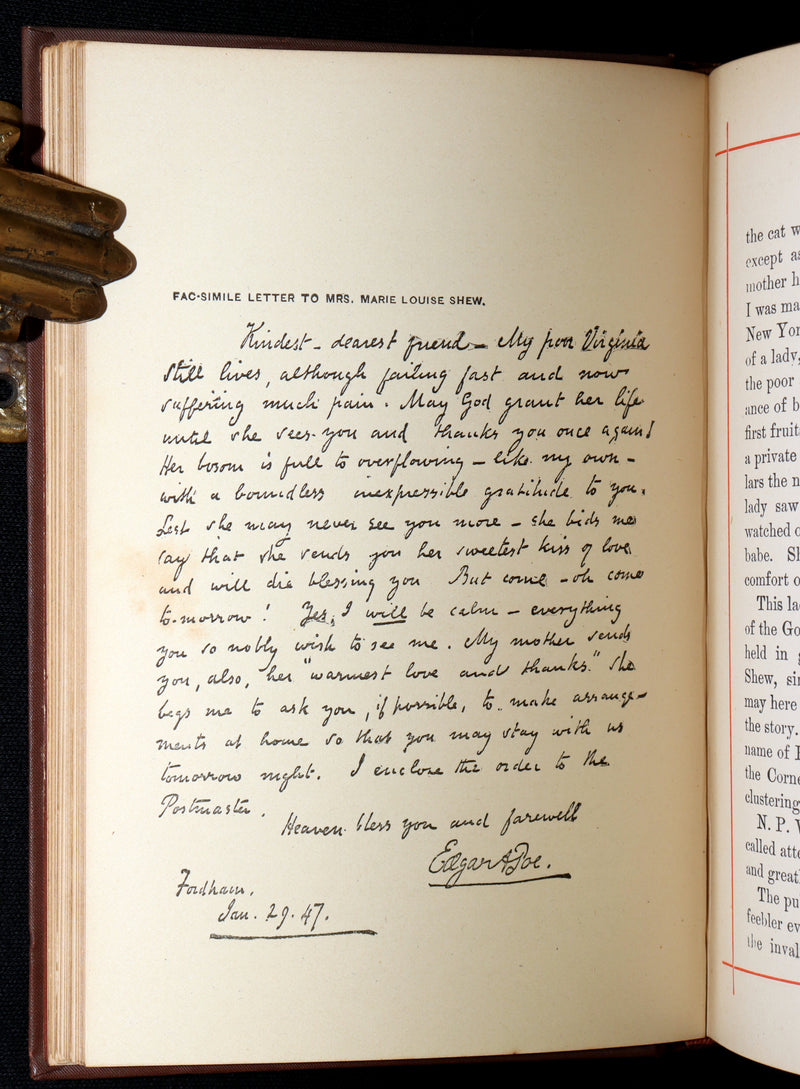 FAC-SIMILE LETTER TO MRS. MARIE LOUISE SHEW.
Kindest – dearest friend – My poor Virginia
still lives, although failing fast and now
suffering much pain. May God grant her life
until she sees you and thanks you once again!
Her bosom is full to overflowing – like my own –
with a boundless inexpressible gratitude to you.
Lest she may never see you more – she bids me
say that she sends you her sweetest kiss of love
and will die blessing you But come – oh come
to-morrow! Yes, I will be calm – everything
you so nobly wish to see me. My mother sends
you, also, her "warmest love and thanks." She
begs me to ask you, if possible, to make arrange-
ments at home so that you may stay with us
tomorrow night. I enclose the order to the
Postmaster.
Heaven bless you and farewell
Edgar A Poe.
Fordham.
Jan. 29. 47.
the cat
except
mother
I was
New
of a lady,
the poor
ance of
first
a private
lars the
lady saw
watched
babe.
comfort
This
of the
held in
Shew,
may here
the story.
name of
the
clustering
N. P.
called
and
The
feebler
the